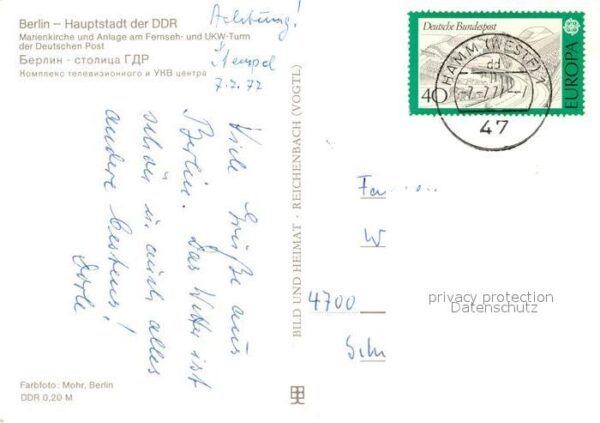 Berlin – Hauptstadt der DDR
Marienkirche und Anlage am Fernseh- und UKW-Turm
der Deutschen Post
Берлин - столица ГДР
Комплекс телевизионного и УКВ центра
Achtung!
Stempel
7.7.77
Viele Grüße aus
Berlin. Das Wetter ist
schön u. auch alles
andere bestens!
BILD UND HEIMAT · REICHENBACH (VOGTL)
Deutsche Bundespost
40
EUROPA
HAMM (WESTF) 1
dd
-7.-7.77.-7
47
Fam
W
4700
privacy protection
Datenschutz
Farbfoto: Mohr, Berlin
DDR 0,20 M